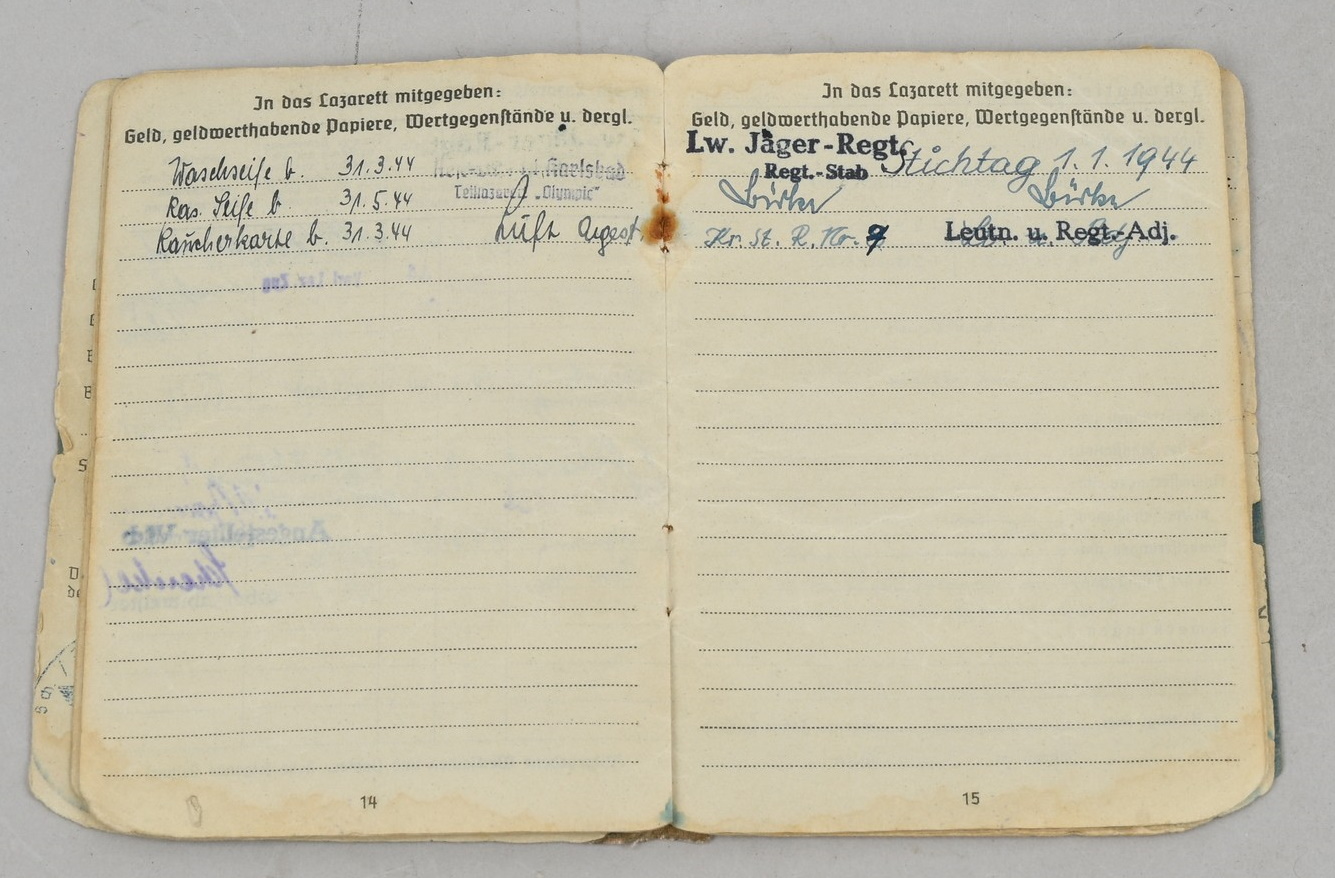 In das Lazarett mitgegeben:
Geld, geldwerthabende Papiere, Wertgegenstände u. dergl.
Waschseife b. 31.3.44
Karlsbad
Teillazarett „Olympic“
Ras. Seife b 31.5.44
Raucherkarte b. 31.3.44
14
In das Lazarett mitgegeben:
Geld, geldwerthabende Papiere, Wertgegenstände u. dergl.
Lw. Jäger-Regt.
Stichtag 1.1.1944
Regt.-Stab
Kr. St. R. Nr. 9
Leutn. u. Regt.-Adj.
15